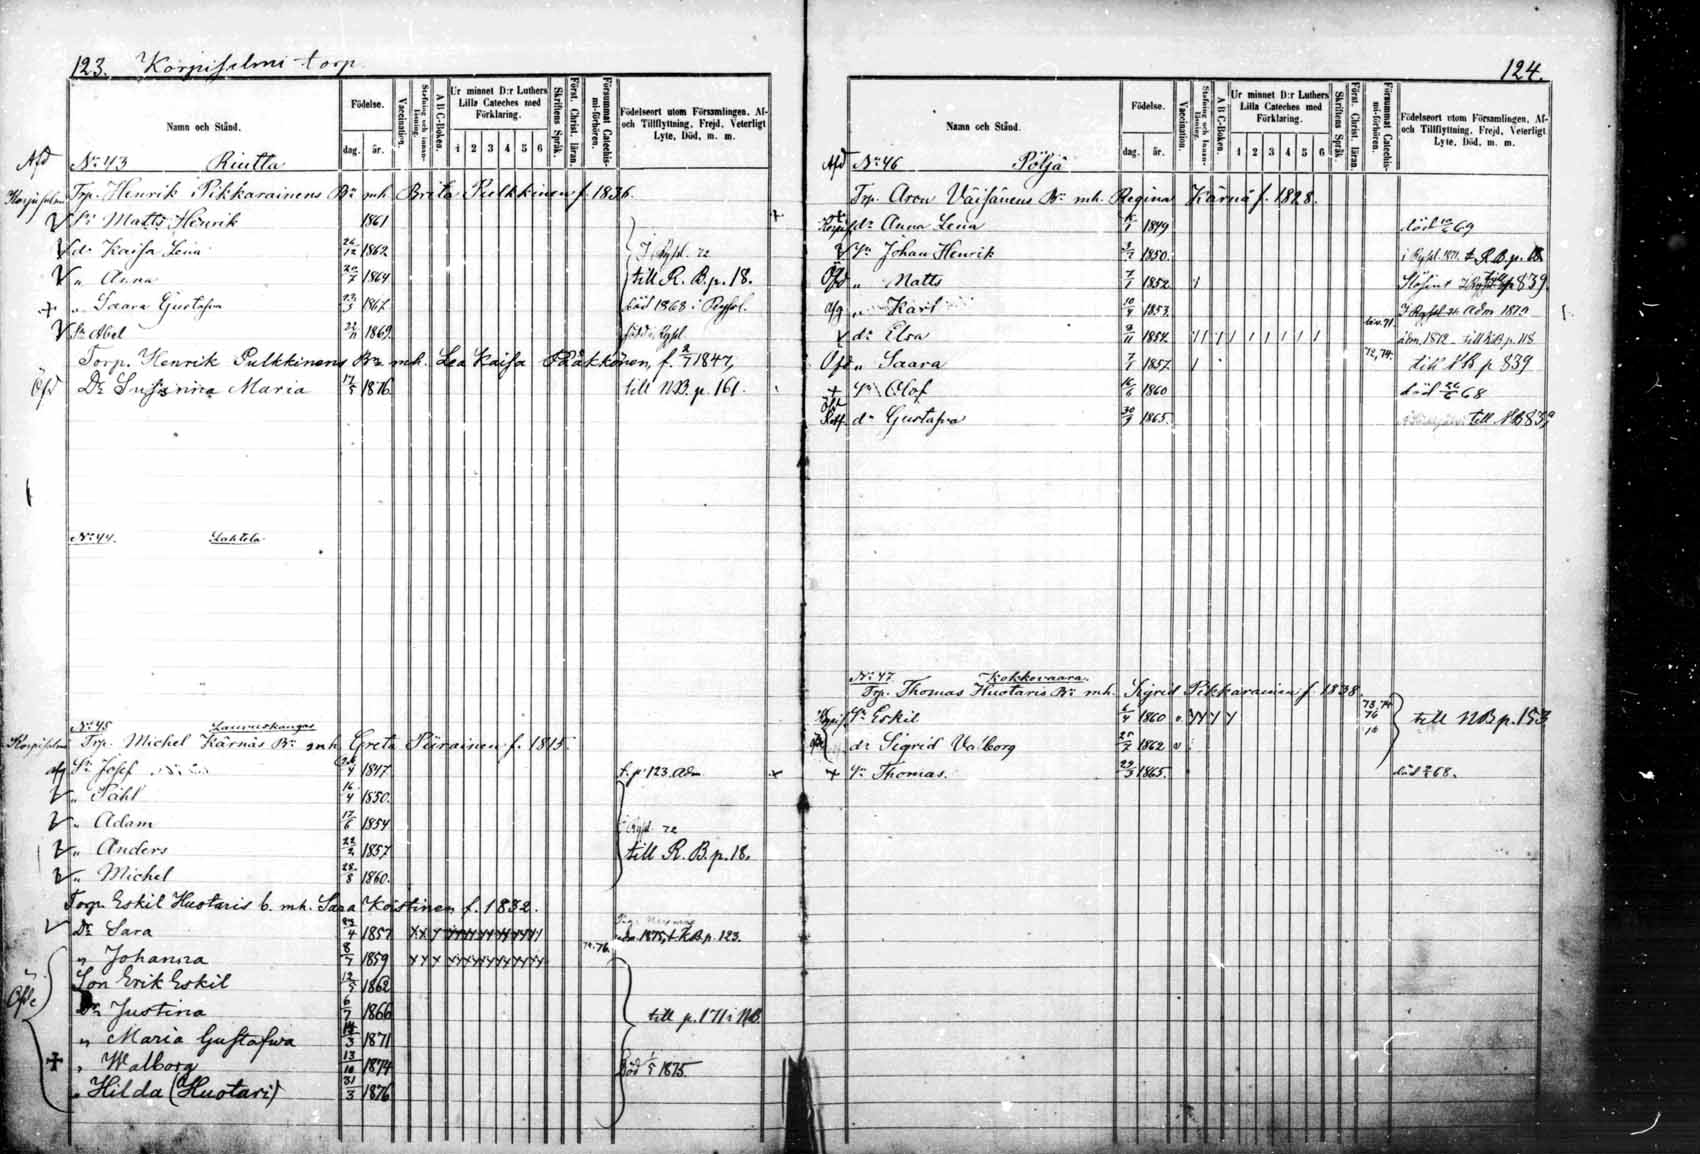 123. Korpiselmi torp.
Namn och Stånd.
Födelse.
dag. år.
Vaccination.
Stafning och innan-läsning.
A B C-Boken.
Ur minnet D:r Luthers Lilla Cateches med Förklaring.
1 2 3 4 5 6
Skriftens Språk.
Först. Christ. läran.
Försummat Catechis-mi-förhören.
Födelseort utom Församlingen, Af- och Tillflyttning, Frejd, Veterligt Lyte, Död, m. m.
Afd No 43 Riutta
Korpiselmi Trp. Henrik Pikkarainens Bn mh Brita Pulkkinen f. 1836.
Sn Matts Henrik 1861
dr Kaisa Lena 26/12 1862 I Rysl. 72
" Anna 20/7 1864 till R. B. p. 18.
+ " Saara Gustafva 13/3 1867 död 1868 i Ryssl.
Sn Abel 22/11 1869 född i Rysl
Torp. Henrik Pulkkinens Bn mh. Lea Kaisa Räkkönen, f. 2/7 1847,
Dr Susanna Maria 17/5 1876. till N.B. p. 161.
No 44. Lahtela
No 45 Lauruskangas
Korpiselmi Trp. Michel Kärnäs Bn mh Greta Piirainen f. 1815.
afg Sn Josef 24/4 1847 t. p. 123. adm
" Påhl 16/4 1850.
" Adam 17/6 1854 i Rysl. 72
" Anders 22/2 1857 till R. B. p. 18.
" Michel 28/8 1860.
Torp. Eskil Huotaris b. mh. Sara Koistinen f. 1832.
Dr Sara 23/4 1857 adm. 1875, t. K.B. p. 123.
" Johanna 8/7 1859 74. 76.
Son Erik Eskil 12/5 1862
Dr Justina 6/7 1866 till p. 171 i N.B.
" Maria Gustafva 14/3 1871
+ " Walborg 13/10 1874 Död 1/5 1875.
" Hilda (Huotari) 31/3 1876
124.
Namn och Stånd.
Födelse.
dag. år.
Vaccination.
Stafning och innan-läsning.
A B C-Boken.
Ur minnet D:r Luthers Lilla Cateches med Förklaring.
1 2 3 4 5 6
Skriftens Språk.
Först. Christ. läran.
Försummat Catechis-mi-förhören.
Födelseort utom Församlingen, Af- och Tillflyttning, Frejd, Veterligt Lyte, Död, m. m.
Afd No 46 Pöljä
Trp. Aron Väisänens Bn mh. Regina Kärnä f. 1828.
dr Anna Lena 1849 död 69
Sn Johan Henrik 1850. i Rysl. 1871. t. R.B. p. 18
" Matts 7/1 1852 p 839.
afg " Karl 10/4 1853. I Rysl. Adm 1872
dr Elsa 9/11 1854. adm. 1872 - till K.B. p. 118
" Saara 7/1 1857. 72, 74. till N B p 839
+ Sn Olof 16/6 1860 död 26/6 68
dr Gustafva 30/9 1865. till N B 839
No 47. Kokkovaara.
Trp. Thomas Huotaris Bn mh. Sigrid Pikkarainen f. 1838.
Sn Eskil 6/4 1860 73, 74 76 till N B p. 153
dr Sigrid Valborg 25/7 1862
+ Sn Thomas. 29/3 1865. död 68.